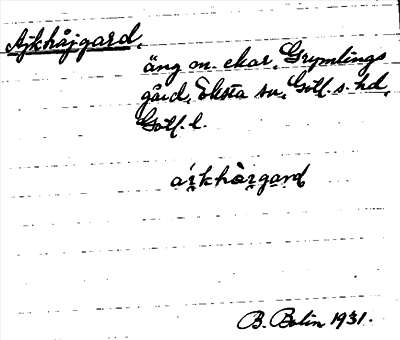 Ajkhåjgard,
äng m. ekar, Grymlings
gård, Eksta sn, Gotl. s. hd,
Gotl. l.
B. Bolin 1931.